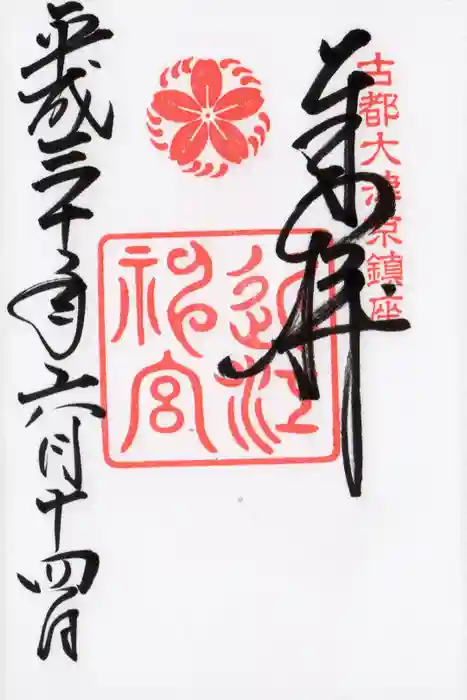 古都大津京鎮座
奉拝
近江
神宮
平成三十年六月十四日